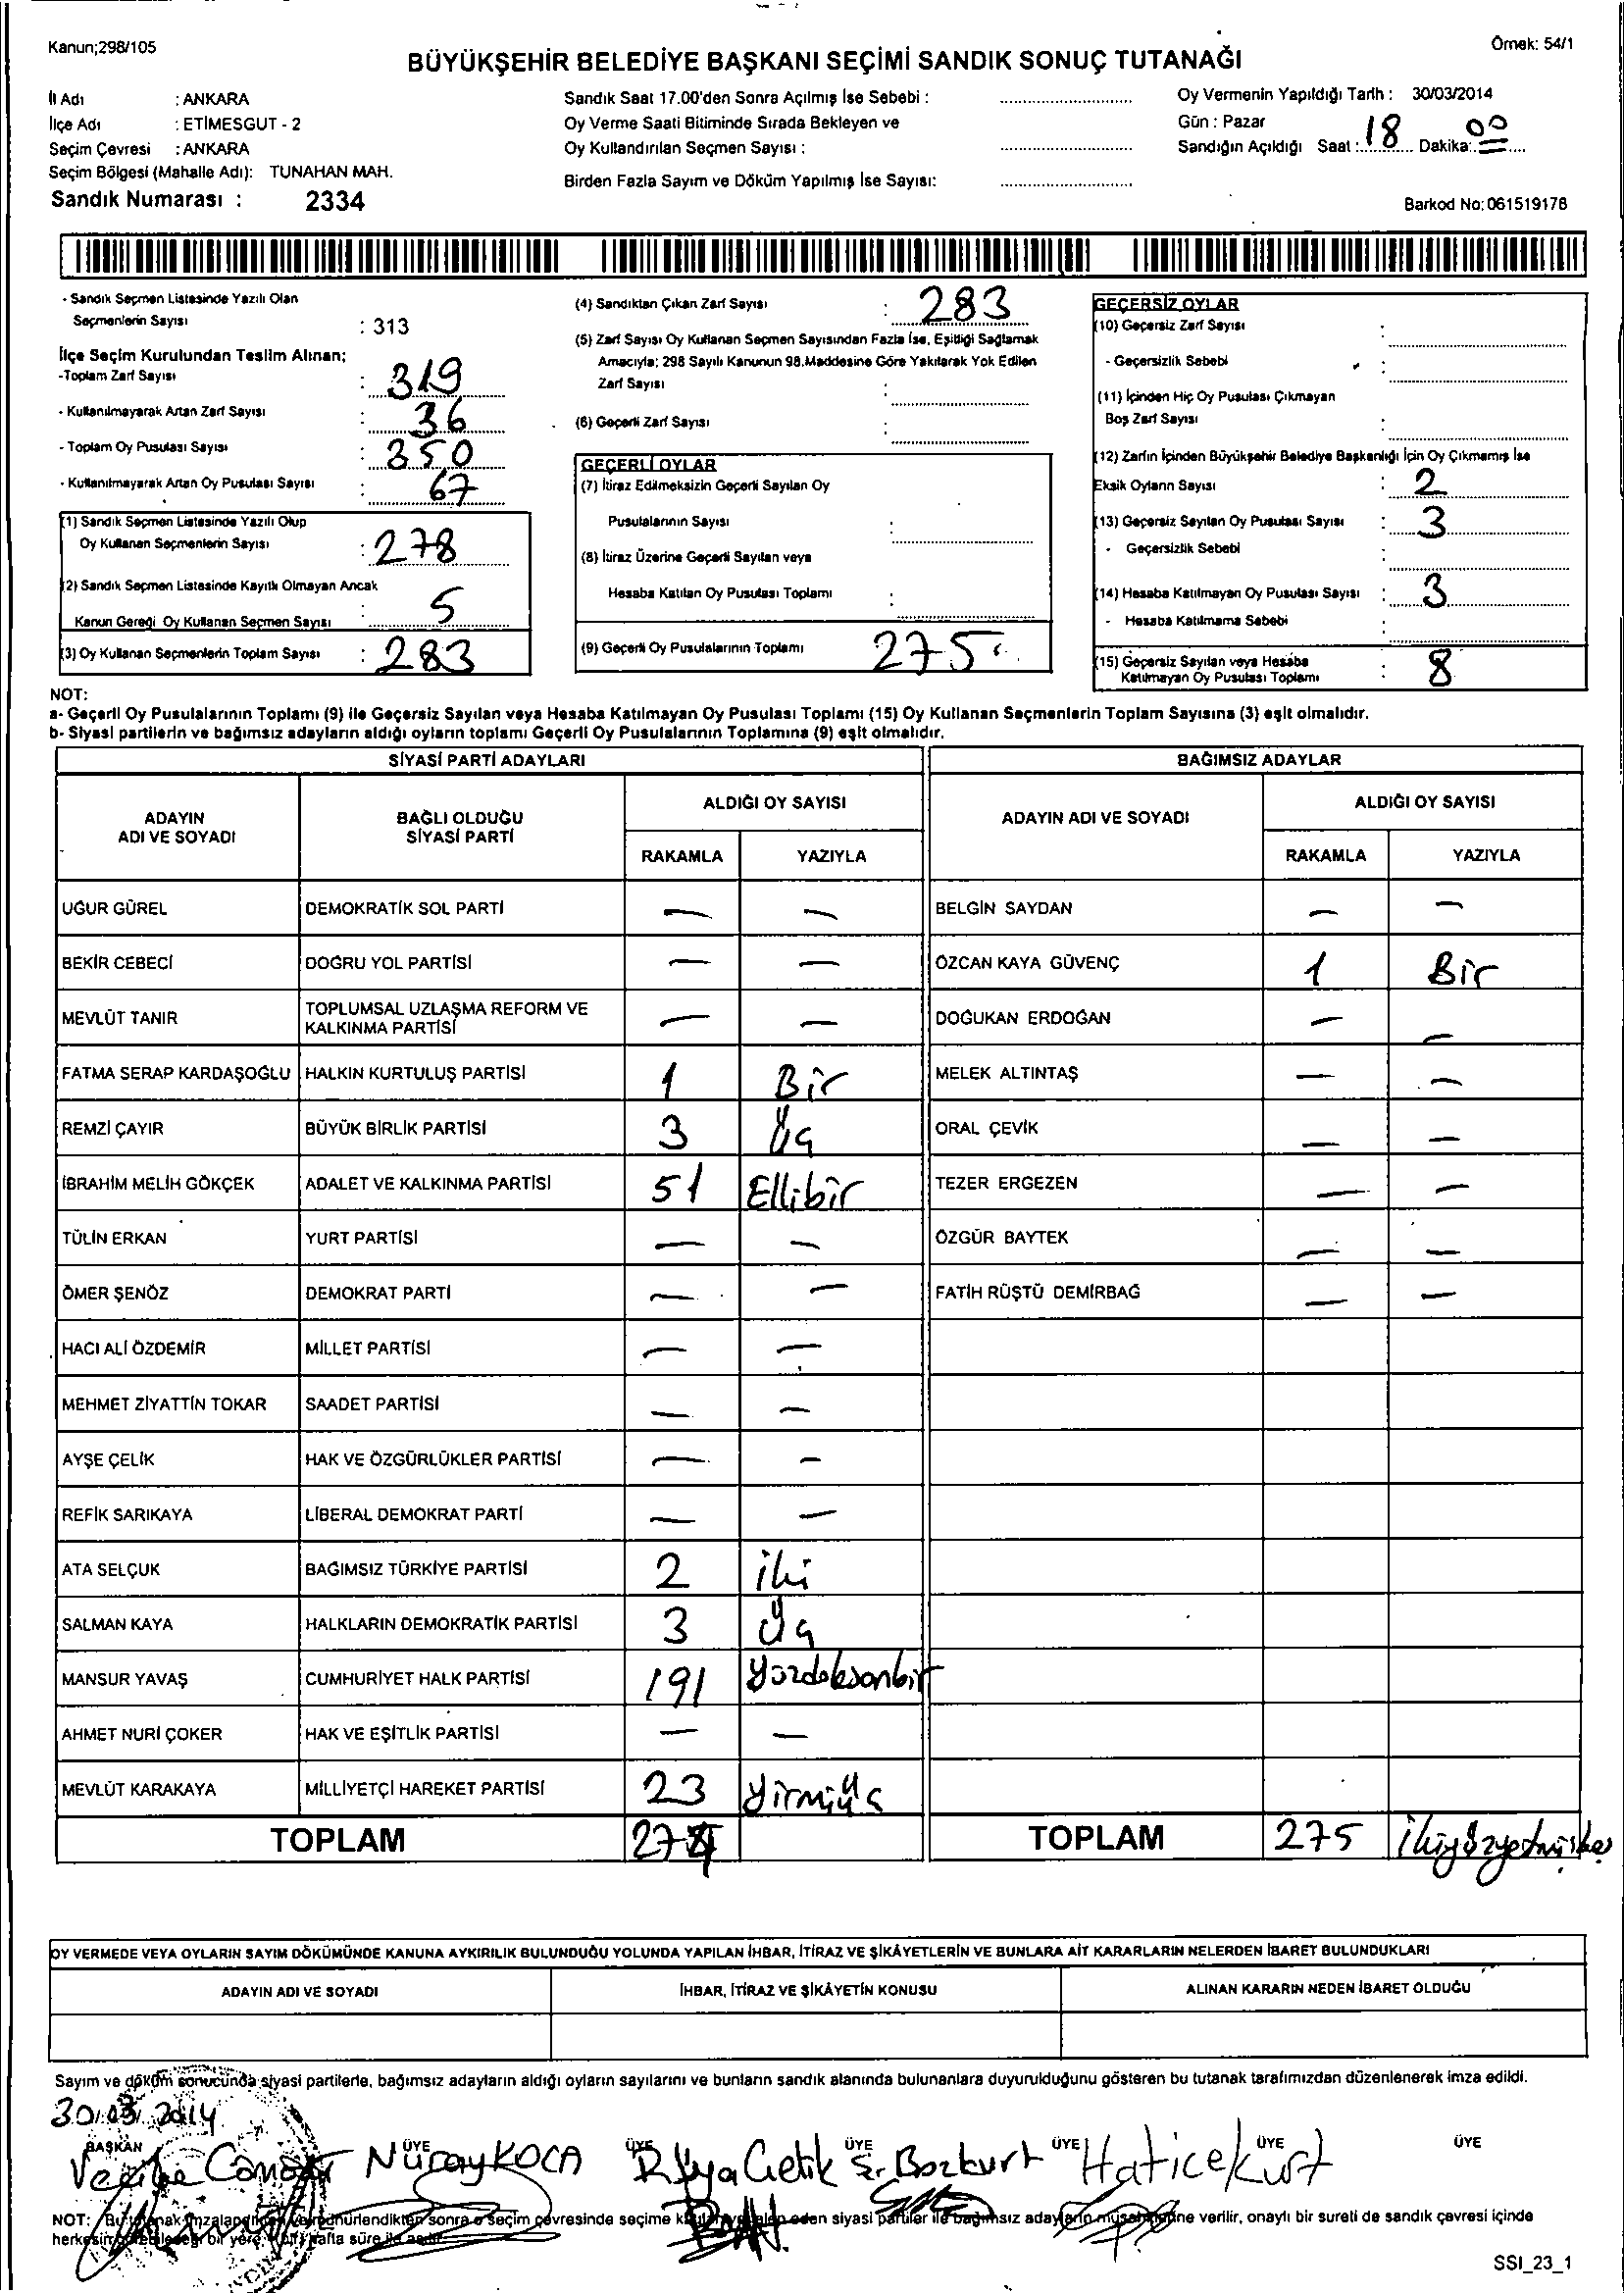 Kanun;298/105
Örnek: 54/1
BÜYÜKŞEHİR BELEDİYE BAŞKANI SEÇİMİ SANDIK SONUÇ TUTANAĞI
İl Adı : ANKARA
İlçe Adı : ETİMESGUT - 2
Seçim Çevresi : ANKARA
Seçim Bölgesi (Mahalle Adı): TUNAHAN MAH.
Sandık Numarası : 2334
Sandık Saat 17.00'den Sonra Açılmış İse Sebebi :
Oy Verme Saati Bitiminde Sırada Bekleyen ve
Oy Kullandırılan Seçmen Sayısı :
Birden Fazla Sayım ve Döküm Yapılmış İse Sayısı:
Oy Vermenin Yapıldığı Tarih : 30/03/2014
Gün : Pazar
Sandığın Açıldığı Saat : 18 Dakika: 00
Barkod No: 061519178
- Sandık Seçmen Listesinde Yazılı Olan
Seçmenlerin Sayısı : 313
İlçe Seçim Kurulundan Teslim Alınan;
-Toplam Zarf Sayısı : 319
- Kullanılmayarak Artan Zarf Sayısı : 36
- Toplam Oy Pusulası Sayısı : 350
- Kullanılmayarak Artan Oy Pusulası Sayısı : 67
(1) Sandık Seçmen Listesinde Yazılı Olup
Oy Kullanan Seçmenlerin Sayısı : 278
(2) Sandık Seçmen Listesinde Kayıtlı Olmayan Ancak
Kanun Gereği Oy Kullanan Seçmen Sayısı : 5
(3) Oy Kullanan Seçmenlerin Toplam Sayısı : 283
(4) Sandıktan Çıkan Zarf Sayısı : 283
(5) Zarf Sayısı Oy Kullanan Seçmen Sayısından Fazla İse, Eşitliği Sağlamak
Amacıyla; 298 Sayılı Kanunun 98.Maddesine Göre Yakılarak Yok Edilen
Zarf Sayısı :
(6) Geçerli Zarf Sayısı :
GEÇERLİ OYLAR
(7) İtiraz Edilmeksizin Geçerli Sayılan Oy
Pusulalarının Sayısı :
(8) İtiraz Üzerine Geçerli Sayılan veya
Hesaba Katılan Oy Pusulası Toplamı :
(9) Geçerli Oy Pusulalarının Toplamı 275
GEÇERSİZ OYLAR
(10) Geçersiz Zarf Sayısı :
- Geçersizlik Sebebi :
(11) İçinden Hiç Oy Pusulası Çıkmayan
Boş Zarf Sayısı :
(12) Zarfın İçinden Büyükşehir Belediye Başkanlığı İçin Oy Çıkmamış İse
Eksik Oyların Sayısı : 2
(13) Geçersiz Sayılan Oy Pusulası Sayısı : 3
- Geçersizlik Sebebi :
(14) Hesaba Katılmayan Oy Pusulası Sayısı : 3
- Hesaba Katılmama Sebebi :
(15) Geçersiz Sayılan veya Hesaba
Katılmayan Oy Pusulası Toplamı : 8
NOT:
a- Geçerli Oy Pusulalarının Toplamı (9) ile Geçersiz Sayılan veya Hesaba Katılmayan Oy Pusulası Toplamı (15) Oy Kullanan Seçmenlerin Toplam Sayısına (3) eşit olmalıdır.
b- Siyasi partilerin ve bağımsız adayların aldığı oyların toplamı Geçerli Oy Pusulalarının Toplamına (9) eşit olmalıdır.
SİYASİ PARTİ ADAYLARI
ADAYIN ADI VE SOYADI
BAĞLI OLDUĞU SİYASİ PARTİ
ALDIĞI OY SAYISI
RAKAMLA YAZIYLA
UĞUR GÜREL DEMOKRATİK SOL PARTİ — —
BEKİR CEBECİ DOĞRU YOL PARTİSİ — —
MEVLÜT TANIR TOPLUMSAL UZLAŞMA REFORM VE KALKINMA PARTİSİ — —
FATMA SERAP KARDAŞOĞLU HALKIN KURTULUŞ PARTİSİ 1 Bir
REMZİ ÇAYIR BÜYÜK BİRLİK PARTİSİ 3 Üç
İBRAHİM MELİH GÖKÇEK ADALET VE KALKINMA PARTİSİ 51 Ellibir
TÜLİN ERKAN YURT PARTİSİ — —
ÖMER ŞENÖZ DEMOKRAT PARTİ — —
HACI ALİ ÖZDEMİR MİLLET PARTİSİ — —
MEHMET ZİYATTİN TOKAR SAADET PARTİSİ — —
AYŞE ÇELİK HAK VE ÖZGÜRLÜKLER PARTİSİ — —
REFİK SARIKAYA LİBERAL DEMOKRAT PARTİ — —
ATA SELÇUK BAĞIMSIZ TÜRKİYE PARTİSİ 2 iki
SALMAN KAYA HALKLARIN DEMOKRATİK PARTİSİ 3 Üç
MANSUR YAVAŞ CUMHURİYET HALK PARTİSİ 191 Yüzdoksanbir
AHMET NURİ ÇOKER HAK VE EŞİTLİK PARTİSİ — —
MEVLÜT KARAKAYA MİLLİYETÇİ HAREKET PARTİSİ 23 Yirmiüç
TOPLAM 274
BAĞIMSIZ ADAYLAR
ADAYIN ADI VE SOYADI
ALDIĞI OY SAYISI
RAKAMLA YAZIYLA
BELGİN SAYDAN — —
ÖZCAN KAYA GÜVENÇ 1 Bir
DOĞUKAN ERDOĞAN — —
MELEK ALTINTAŞ — —
ORAL ÇEVİK — —
TEZER ERGEZEN — —
ÖZGÜR BAYTEK — —
FATİH RÜŞTÜ DEMİRBAĞ — —
TOPLAM 275 ikiyüzyetmişbeş
OY VERMEDE VEYA OYLARIN SAYIM DÖKÜMÜNDE KANUNA AYKIRILIK BULUNDUĞU YOLUNDA YAPILAN İHBAR, İTİRAZ VE ŞİKÂYETLERİN VE BUNLARA AİT KARARLARIN NELERDEN İBARET BULUNDUKLARI
ADAYIN ADI VE SOYADI İHBAR, İTİRAZ VE ŞİKÂYETİN KONUSU ALINAN KARARIN NEDEN İBARET OLDUĞU
Sayım ve döküm sonucunda siyasi partilerle, bağımsız adayların aldığı oyların sayılarını ve bunların sandık alanında bulunanlara duyurulduğunu gösteren bu tutanak tarafımızdan düzenlenerek imza edildi.
30.03.2014
BAŞKAN ÜYE ÜYE ÜYE ÜYE ÜYE ÜYE
Nuray KOCA Rüya Çetik S. Bozkurt Hatice Kurt
NOT: Bu tutanak imzalandıktan ve mühürlendikten sonra o seçim çevresinde seçime katılan siyasi partiler ile bağımsız adayların müşahitlerine verilir, onaylı bir sureti de sandık çevresi içinde
herkesin görebileceği bir yere bir hafta süre ile asılır.
SSI_23_1